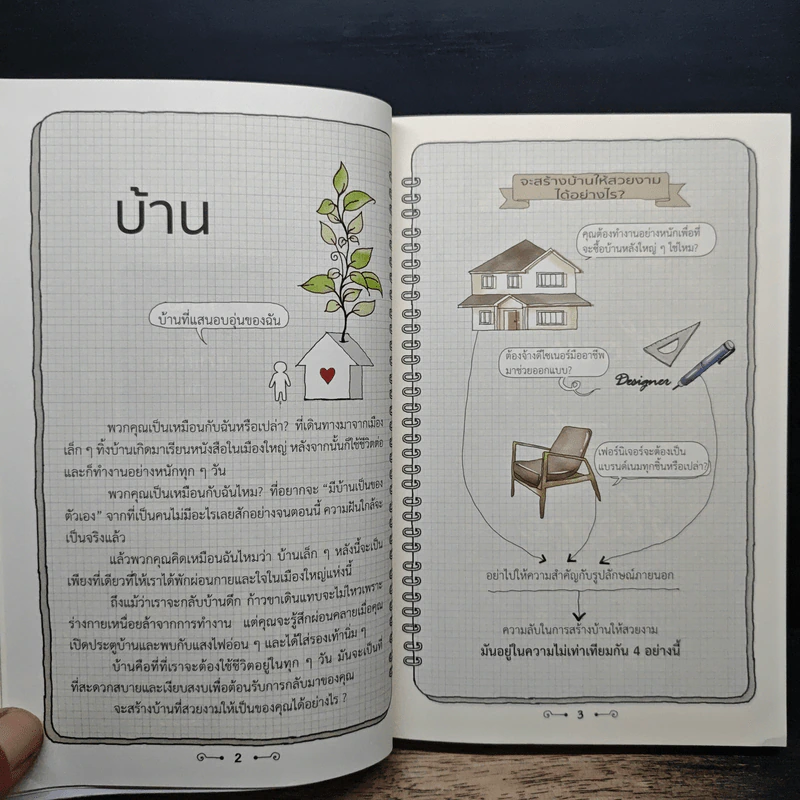 บ้าน
บ้านที่แสนอบอุ่นของฉัน
พวกคุณเป็นเหมือนกับฉันหรือเปล่า? ที่เดินทางมาจากเมือง
เล็ก ๆ ทิ้งบ้านเกิดมาเรียนหนังสือในเมืองใหญ่ หลังจากนั้นก็ใช้ชีวิตต่อ
และก็ทำงานอย่างหนักทุก ๆ วัน
พวกคุณเป็นเหมือนกับฉันไหม? ที่อยากจะ “มีบ้านเป็นของ
ตัวเอง” จากที่เป็นคนไม่มีอะไรเลยสักอย่างจนตอนนี้ ความฝันใกล้จะ
เป็นจริงแล้ว
แล้วพวกคุณคิดเหมือนฉันไหมว่า บ้านเล็ก ๆ หลังนี้จะเป็น
เพียงที่เดียวที่ให้เราได้พักผ่อนกายและใจในเมืองใหญ่แห่งนี้
ถึงแม้ว่าเราจะกลับบ้านดึก ก้าวขาเดินแทบจะไม่ไหวเพราะ
ร่างกายเหนื่อยล้าจากการทำงาน แต่คุณจะรู้สึกผ่อนคลายเมื่อคุณ
เปิดประตูบ้านและพบกับแสงไฟอ่อน ๆ และได้ใส่รองเท้านิ่ม ๆ
บ้านคือที่ที่เราจะต้องใช้ชีวิตอยู่ในทุก ๆ วัน มันจะเป็นที่
ที่สะดวกสบายและเงียบสงบเพื่อต้อนรับการกลับมาของคุณ
จะสร้างบ้านที่สวยงามให้เป็นของคุณได้อย่างไร ?
2
จะสร้างบ้านให้สวยงาม
ได้อย่างไร?
คุณต้องทำงานอย่างหนักเพื่อที่
จะซื้อบ้านหลังใหญ่ ๆ ใช่ไหม?
ต้องจ้างดีไซเนอร์มืออาชีพ
มาช่วยออกแบบ?
Designer
เฟอร์นิเจอร์จะต้องเป็น
แบรนด์เนมทุกชิ้นหรือเปล่า?
อย่าไปให้ความสำคัญกับรูปลักษณ์ภายนอก
ความลับในการสร้างบ้านให้สวยงาม
มันอยู่ในความไม่เท่าเทียมกัน 4 อย่างนี้
3